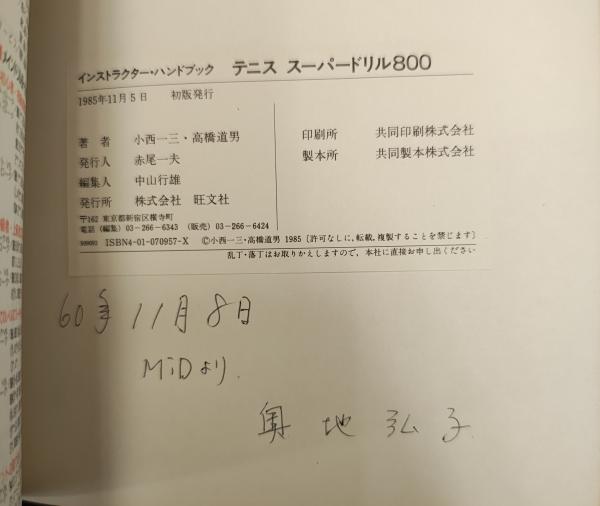 インストラクター・ハンドブック テニス スーパードリル800
1985年11月5日 初版発行
著者 小西一三・高橋道男
発行人 赤尾一夫
編集人 中山行雄
発行所 株式会社 旺文社
〒162 東京都新宿区横寺町
電話 (編集) 03-266-6343 (販売) 03-266-6424
印刷所 共同印刷株式会社
製本所 共同製本株式会社
909093 ISBN4-01-070957-X Ⓒ小西一三・高橋道男 1985 [許可なしに、転載、複製することを禁じます]
乱丁・落丁はお取りかえしますので、本社に直接お申し出ください
60年11月8日
MiDより.
奥地弘子